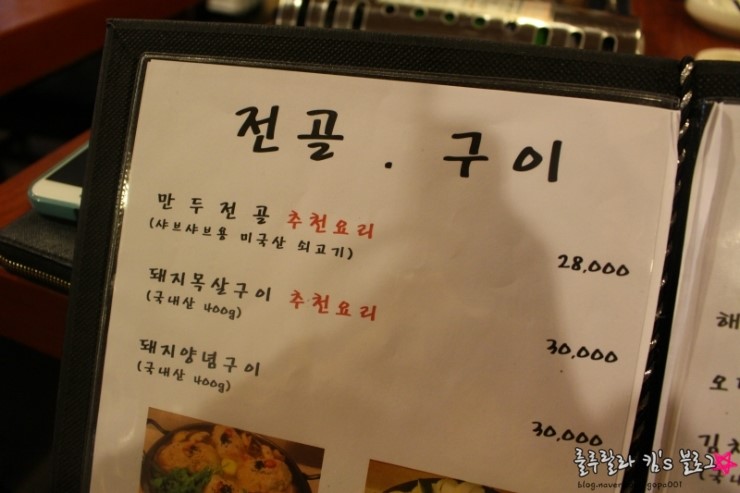 전골 . 구이
만두전골 추천요리
(샤브샤브용 미국산 쇠고기)
28,000
돼지목살구이 추천요리
(국내산 400g)
30,000
돼지양념구이
(국내산 400g)
30,000
해
오
김치
룰루랄라 킴's 블로그